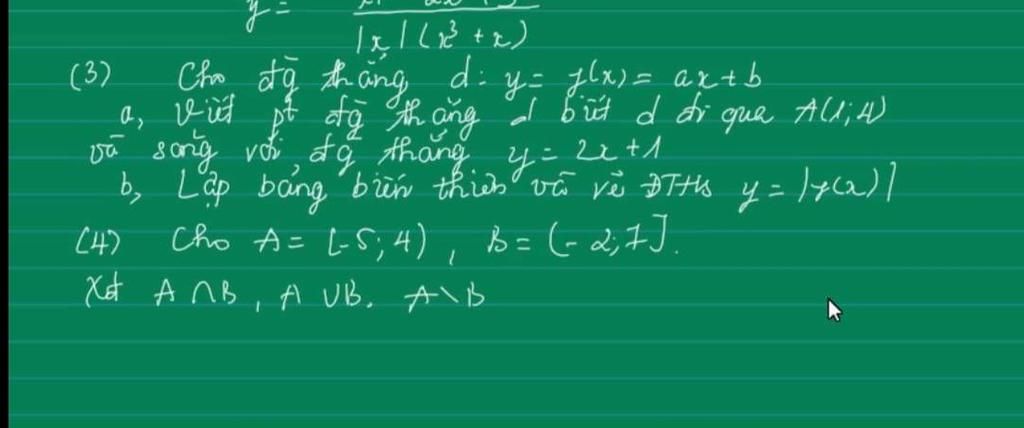 y =
|x| (x³ + x)
(3) Cho đg̃ thẳng d: y = f(x) = ax + b
a, Viết pt đg̃ thẳng d biết d đi qua A(1; 4)
và song với đg̃ thẳng y = 2x + 1
b, Lập bảng biến thiên và vẽ ĐTHs y = |f(x)|
(4) Cho A = [-5; 4), B = (-2; 7].
Xđ A ∩ B, A ∪ B, A \ B